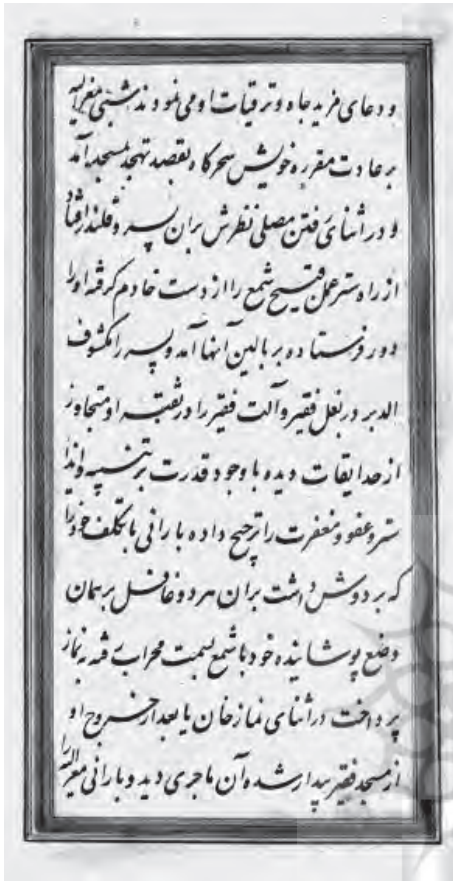 و دعای مزید جاه و ترقیات او می نمودند شبی مغزالیه
بر عادت مقرره خویش سحرکاه بقصد تهجد بمسجد آمد
و در اثنای رفتن مصلی نظرش بران پسر و قلندر افتاد
از راه ستر عمل قبیح شمع را از دست خادم کرفته او را
دور فرستاده بر بالین آنها آمد و پسر را مکشوف
الدبر در بغل فقیر و آلت فقیر را در ثقبه او متجاوز
از حد ایقات دیده با وجود قدرت بر تنبیه و ایذا
ستر و عفو و مغفرت را ترجیح داده بارانی با تکلف خود را
که بر دوش داشت بران هر دو غافل بر همان
وضع پوشانیده خود با شمع بسمت محراب رفته به نماز
پرداخت در اثنای نماز خان یا بعد از خروج او
از مسجد فقیر بیدار شده آن ماجری دید و بارانی مغزالیه را